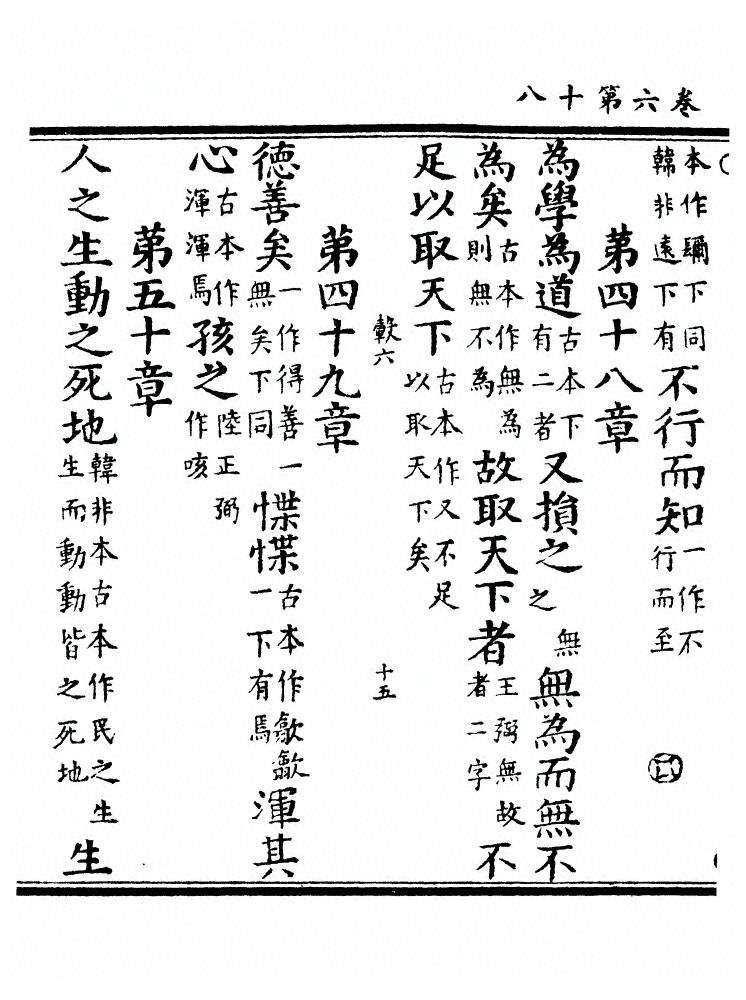 卷六第十八
本作镾下同韓非遠下有不行而知一作不行而至
第四十八章
為學為道古本下有二者又損之無之無為而無不
為矣古本作無為則無不為故取天下者王弼無故者二字不
足以取天下古本作又不足以取天下矣
六 十五
第四十九章
德善矣一作得善一無矣下同惵惵古本作歙歙一下有焉渾其
心古本作渾渾焉孩之陸正弼作咳
第五十章
人之生動之死地韓非本古本作民之生生而動動皆之死地生